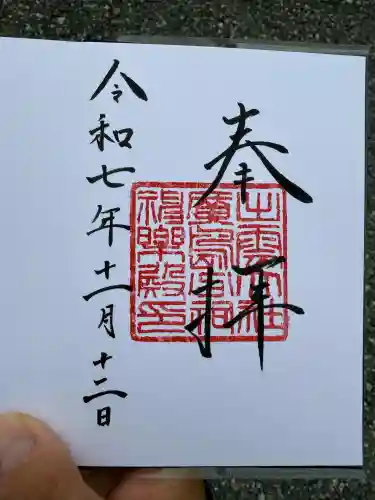 奉拝
出雲大社
廣島分祠
神樂殿印
令和七年十一月十二日